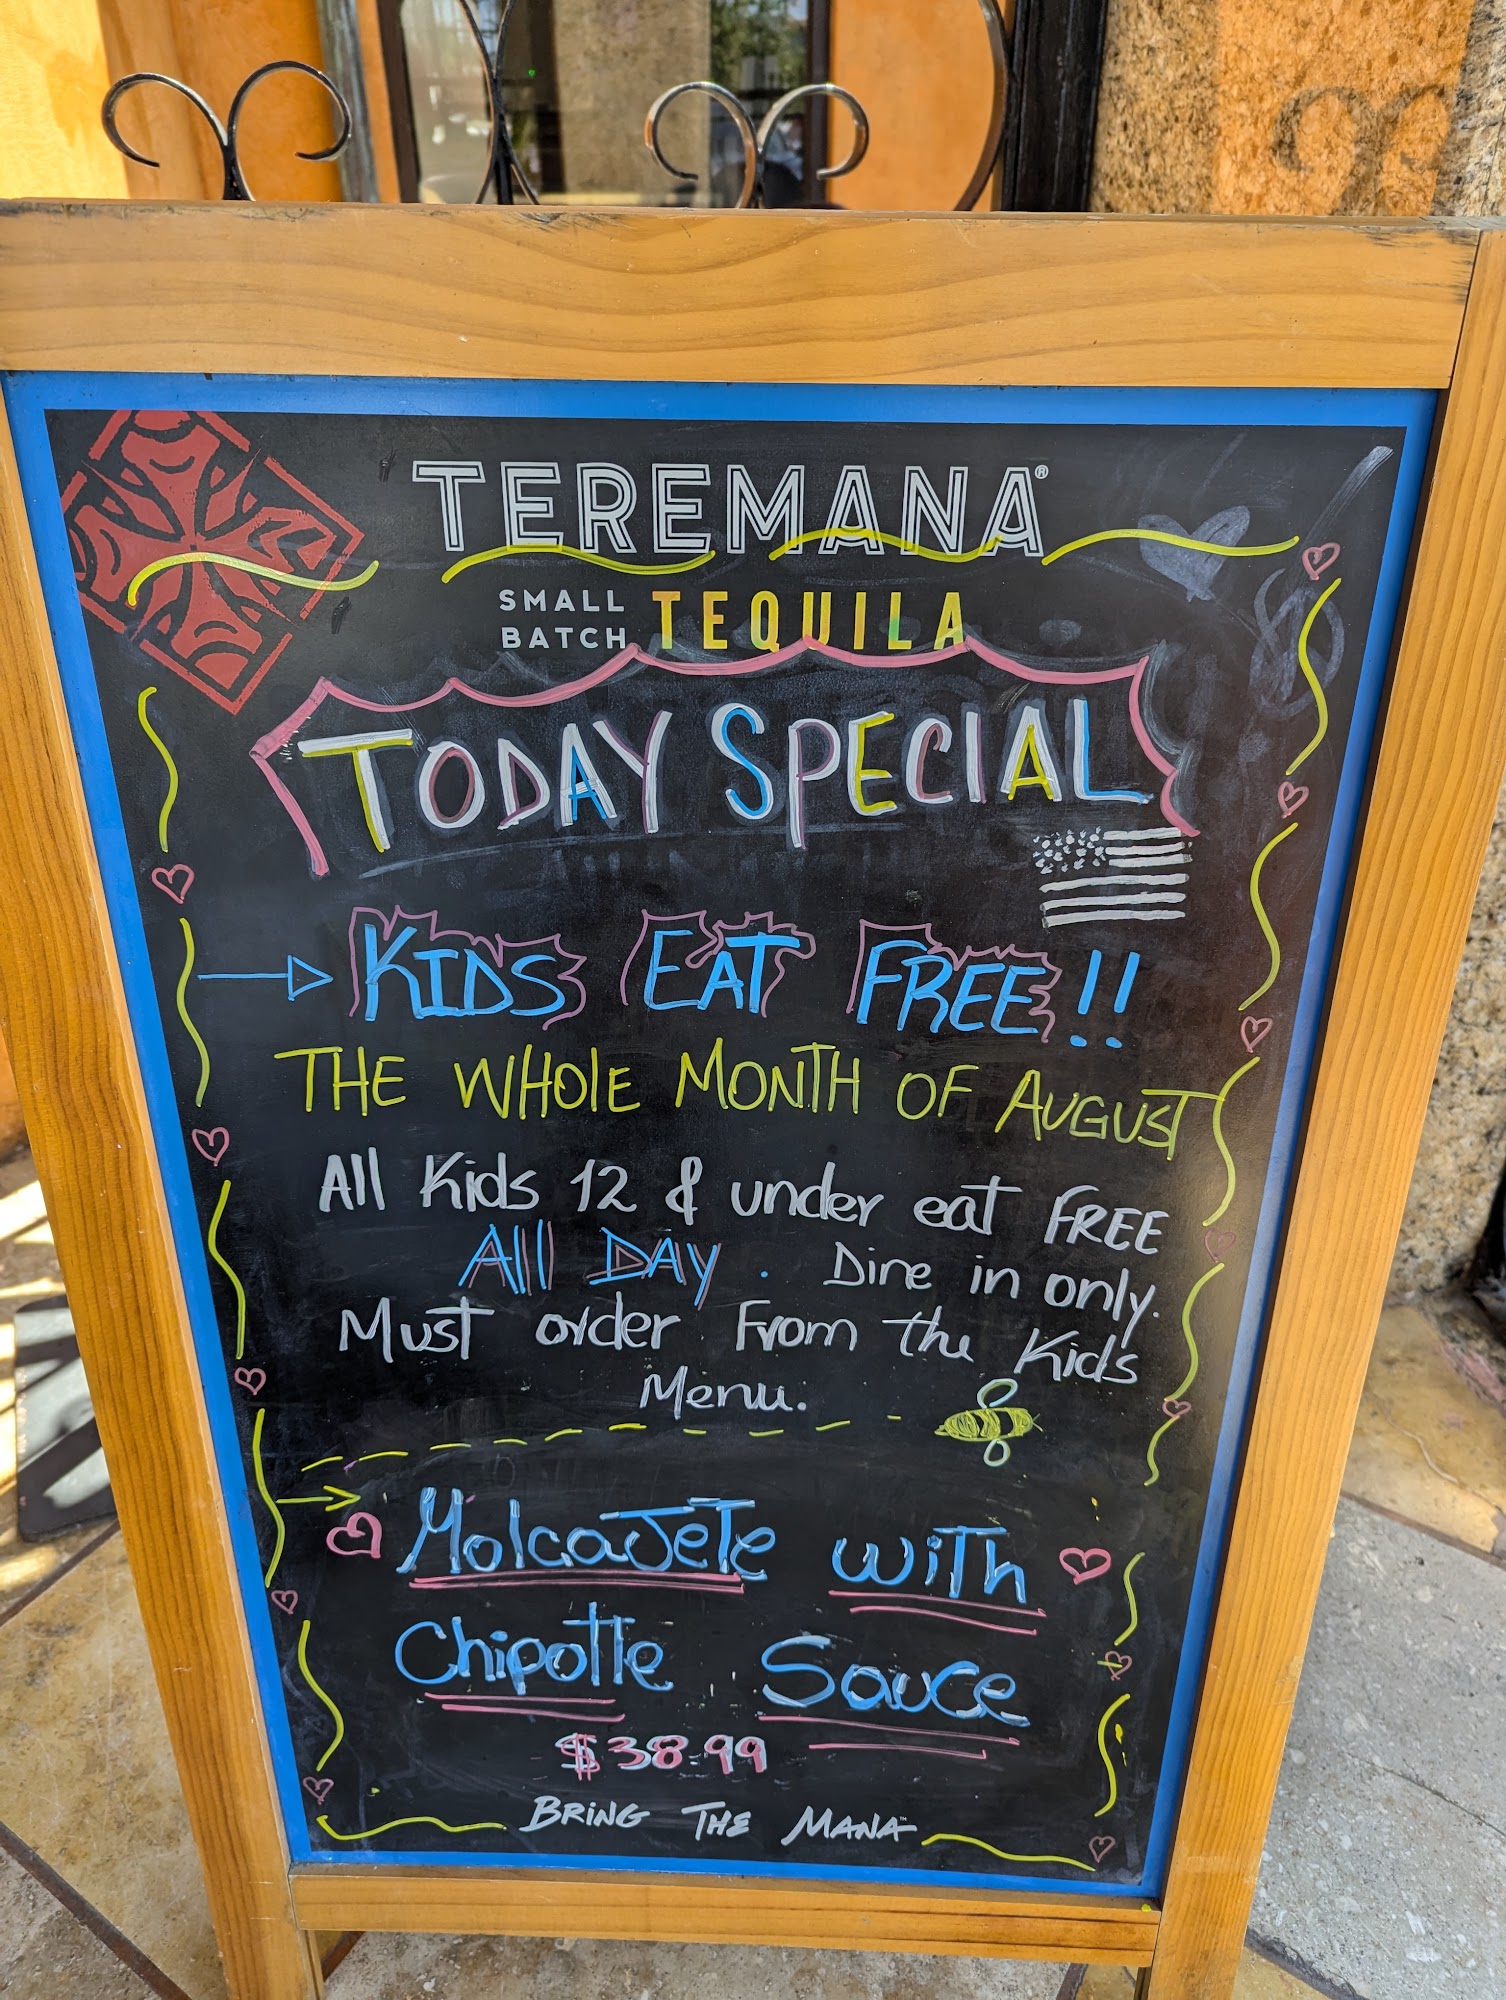 TEREMANA®
SMALL BATCH TEQUILA
TODAY SPECIAL
KIDS EAT FREE!!
THE WHOLE MONTH OF AUGUST
All Kids 12 & under eat FREE
All DAY. Dine in only.
Must order From the Kids
Menu.
MolcaJeTe with
Chipotle Sauce
$38.99
BRING THE MANA™